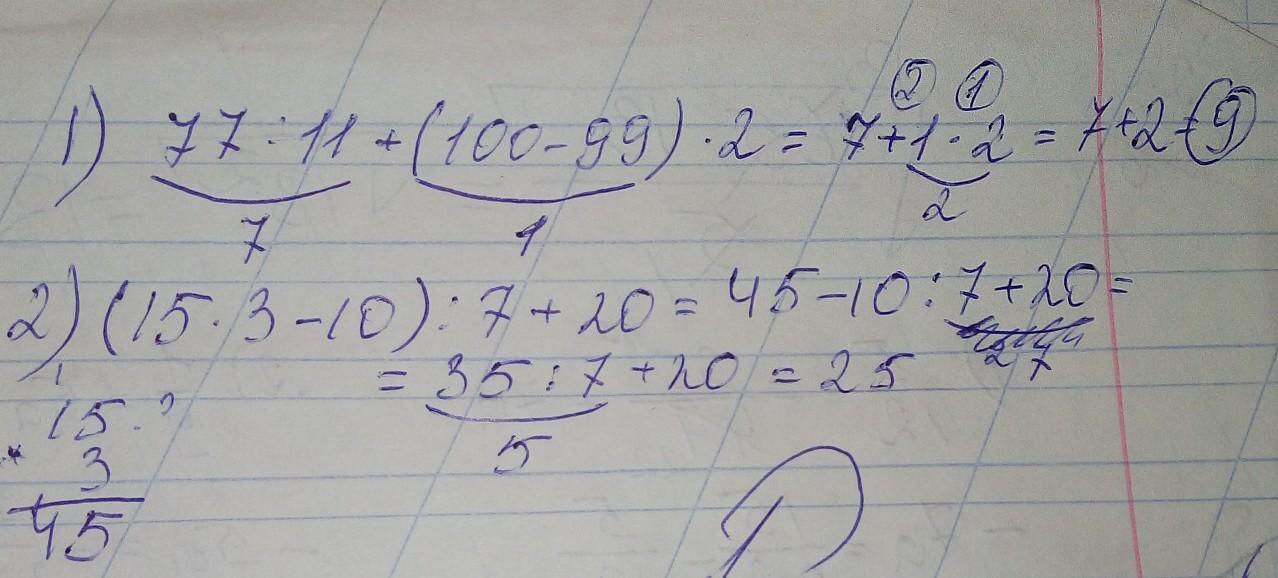 ② ①
1) 77 : 11 + (100 - 99) · 2 = 7 + 1 · 2 = 7 + 2 = 9
7 1 2
2) (15 · 3 - 10) : 7 + 20 = 45 - 10 : 7 + 20 =
27
= 35 : 7 + 20 = 25
5
15
* 3
45